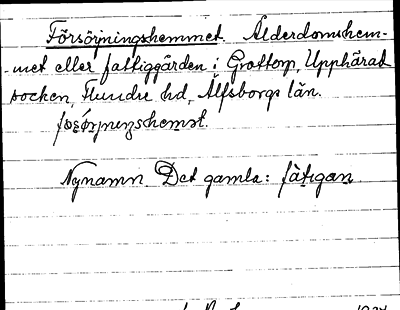 Försörjningshemmet. Ålderdomshem-
met eller fattiggården i Grottorp, Upphärad
socken, Flundre hd, Älfsborgs län.
Nynamn. Det gamla: fàtigan